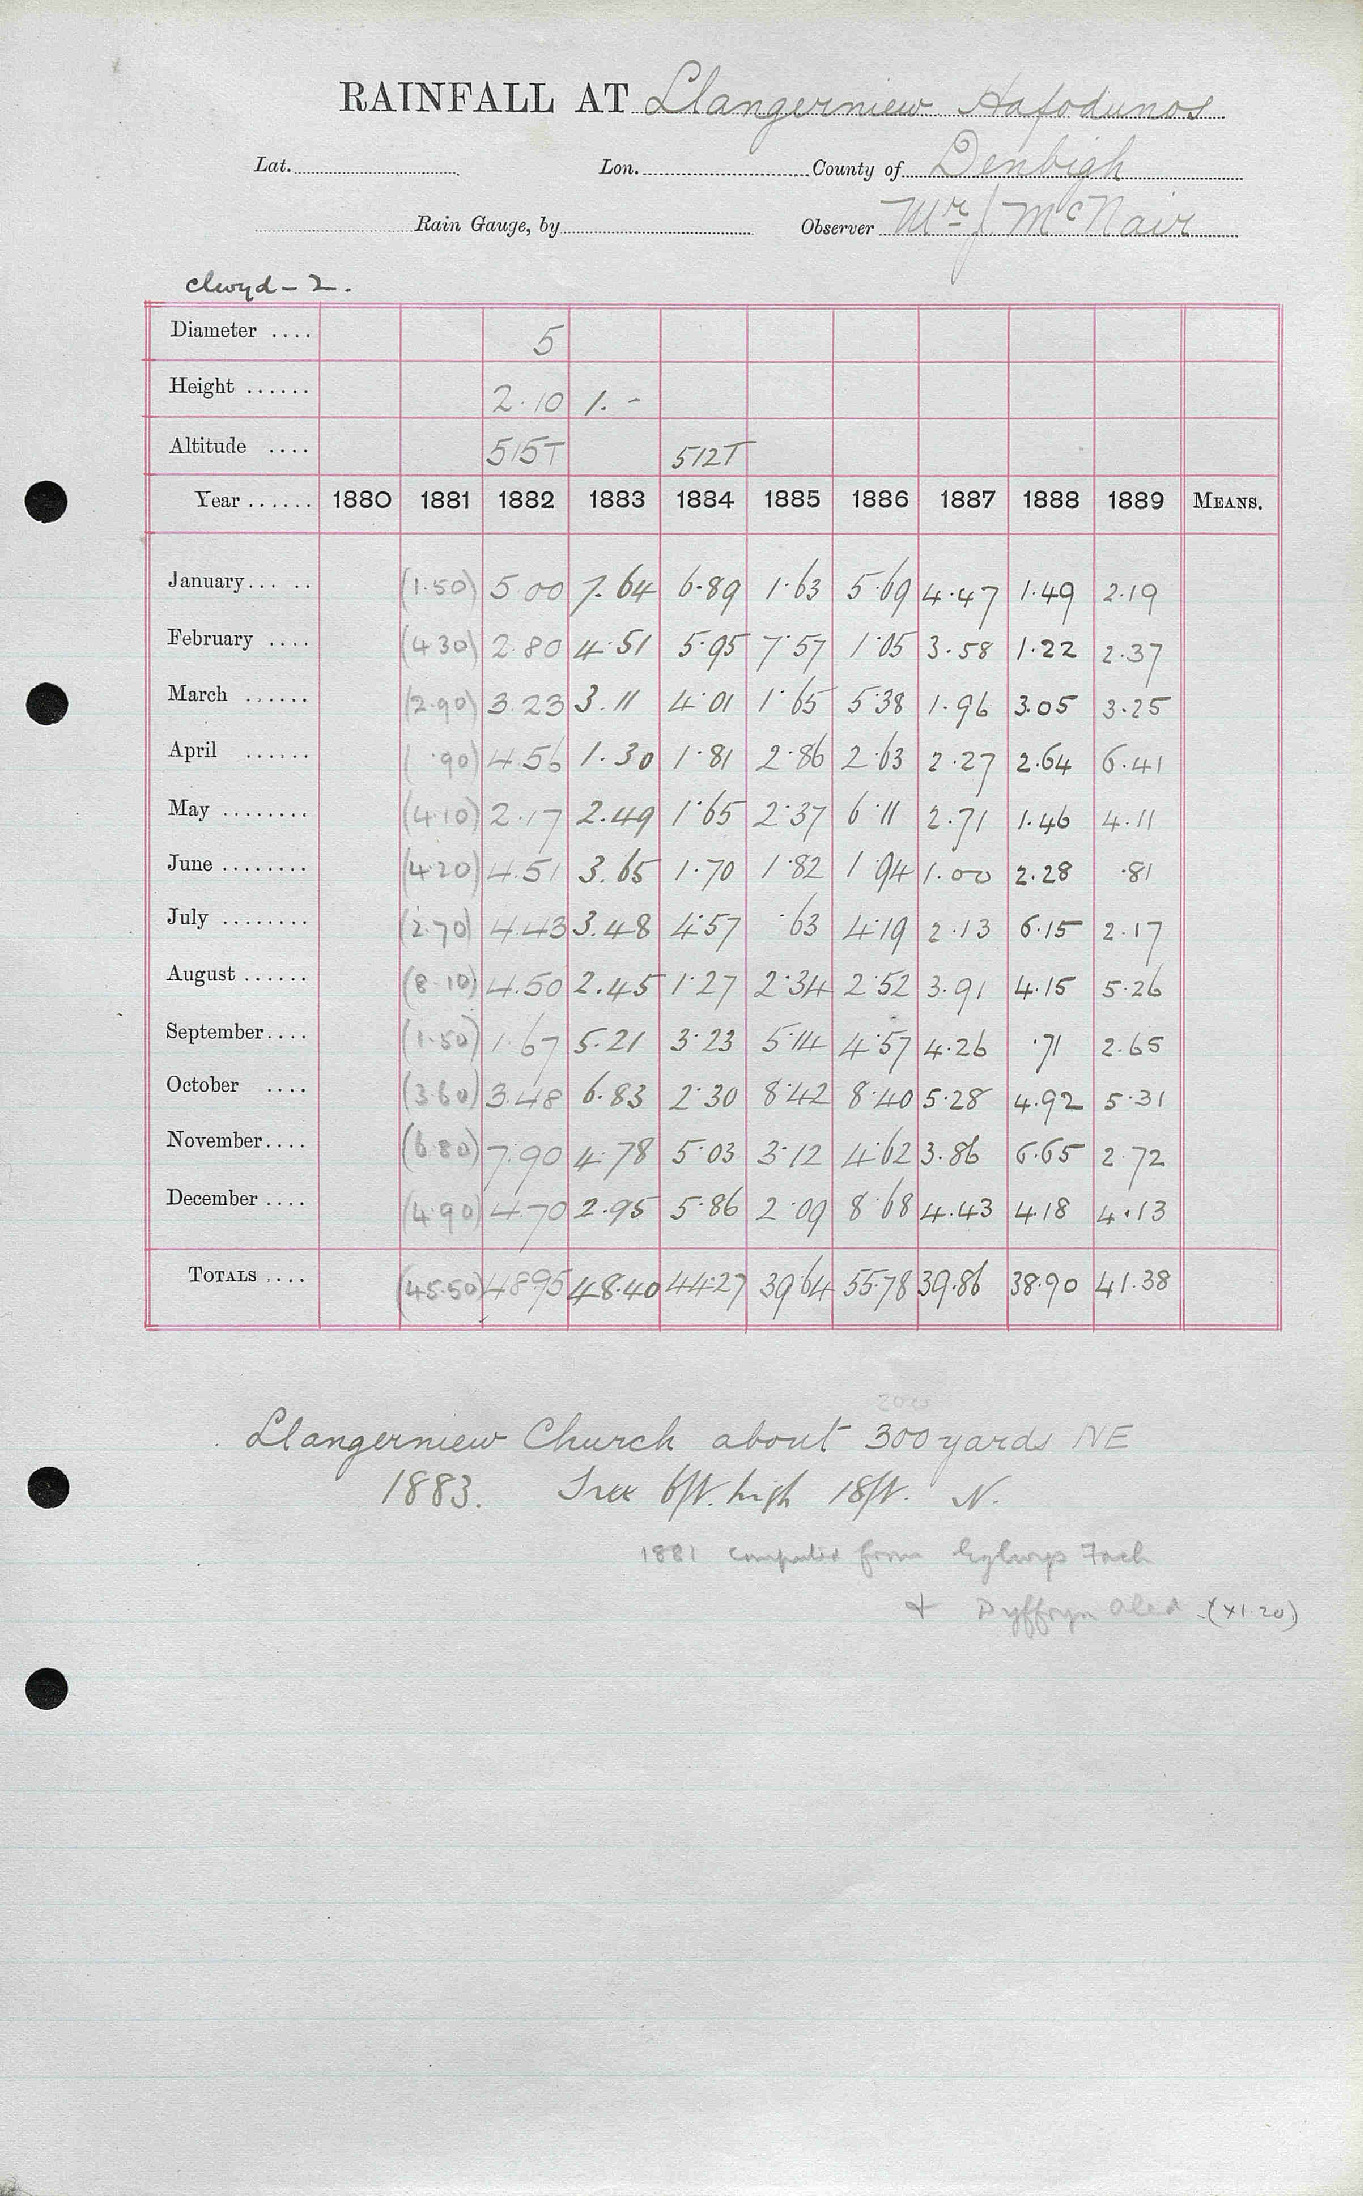 RAINFALL AT Llangerniew Hafodunos
Lat. Lon. County of Denbigh
Rain Gauge, by Observer Mr J McNair
Clwyd - 2.
Diameter .... 5
Height ...... 2.10 1. -
Altitude .... 515T 512T
Year ...... 1880 1881 1882 1883 1884 1885 1886 1887 1888 1889 MEANS.
January ..... (1.50) 5.00 7.64 6.89 1.63 5.69 4.47 1.49 2.19
February .... (4.30) 2.80 4.51 5.95 7.57 1.05 3.58 1.22 2.37
March ...... (2.90) 3.23 3.11 4.01 1.65 5.38 1.96 3.05 3.25
April ...... ( .90) 4.56 1.30 1.81 2.86 2.63 2.27 2.64 6.41
May ........ (4.10) 2.17 2.49 1.65 2.37 6.11 2.71 1.46 4.11
June ........ (4.20) 4.51 3.65 1.70 1.82 1.94 1.00 2.28 .81
July ........ (2.70) 4.43 3.48 4.57 .63 4.19 2.13 6.15 2.17
August ...... (8.10) 4.50 2.45 1.27 2.34 2.52 3.91 4.15 5.26
September .... (1.50) 1.67 5.21 3.23 5.14 4.57 4.26 .71 2.65
October .... (3.60) 3.48 6.83 2.30 8.42 8.40 5.28 4.92 5.31
November .... (6.80) 7.90 4.78 5.03 3.12 4.62 3.86 6.65 2.72
December .... (4.90) 4.70 2.95 5.86 2.09 8.68 4.43 4.18 4.13
TOTALS .... (45.50) 48.95 48.40 44.27 39.64 55.78 39.86 38.90 41.38
200
Llangerniew Church about 300 yards NE
1883. Tree 6ft. high 18ft. N.
1881 computed from Eglwys Fach
+ Dyffryn Aled (x1.20)